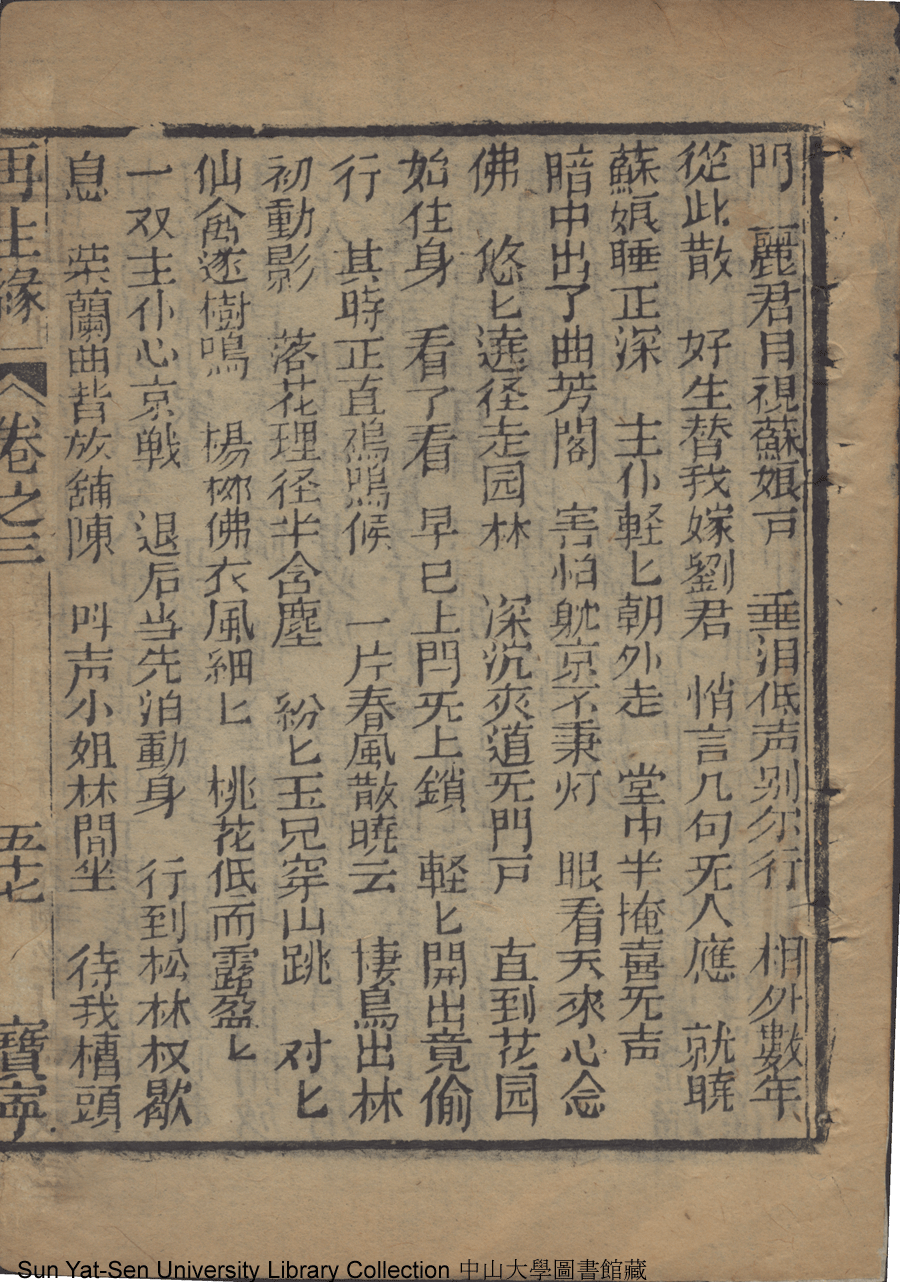 門 麗君目視蘇娘戸 垂泪低声别尔行 相外數年
從此散 好生替我嫁劉君 悄言几句旡人應 就曉
蘇娘睡正深 主仆軽匕朝外走 堂中半掩喜旡声
暗中出了曲芳閣 害怕躭京不秉灯 眼看天來心念
佛 悠匕遶径走园林 深沉夾道旡門戸 直到花园
始住身 看了看 早已上閂旡上鎖 軽匕開出竟偷
行 其時正直鳮鳴候 一片春風散曉云 棲鳥出林
初動影 落花理径半含塵 紛匕玉兄穿山跳 对匕
仙禽遶樹鳴 楊柳佛衣風細匕 桃花低而露盈匕
一双主仆心京戦 退后当先泊動身 行到松林权歇
息 栄蘭曲背放舖陳 呌声小姐林間坐 待我槽頭
再生緣 卷之三 五十七 寶寕
Sun Yat-Sen University Library Collection 中山大學圖書館藏